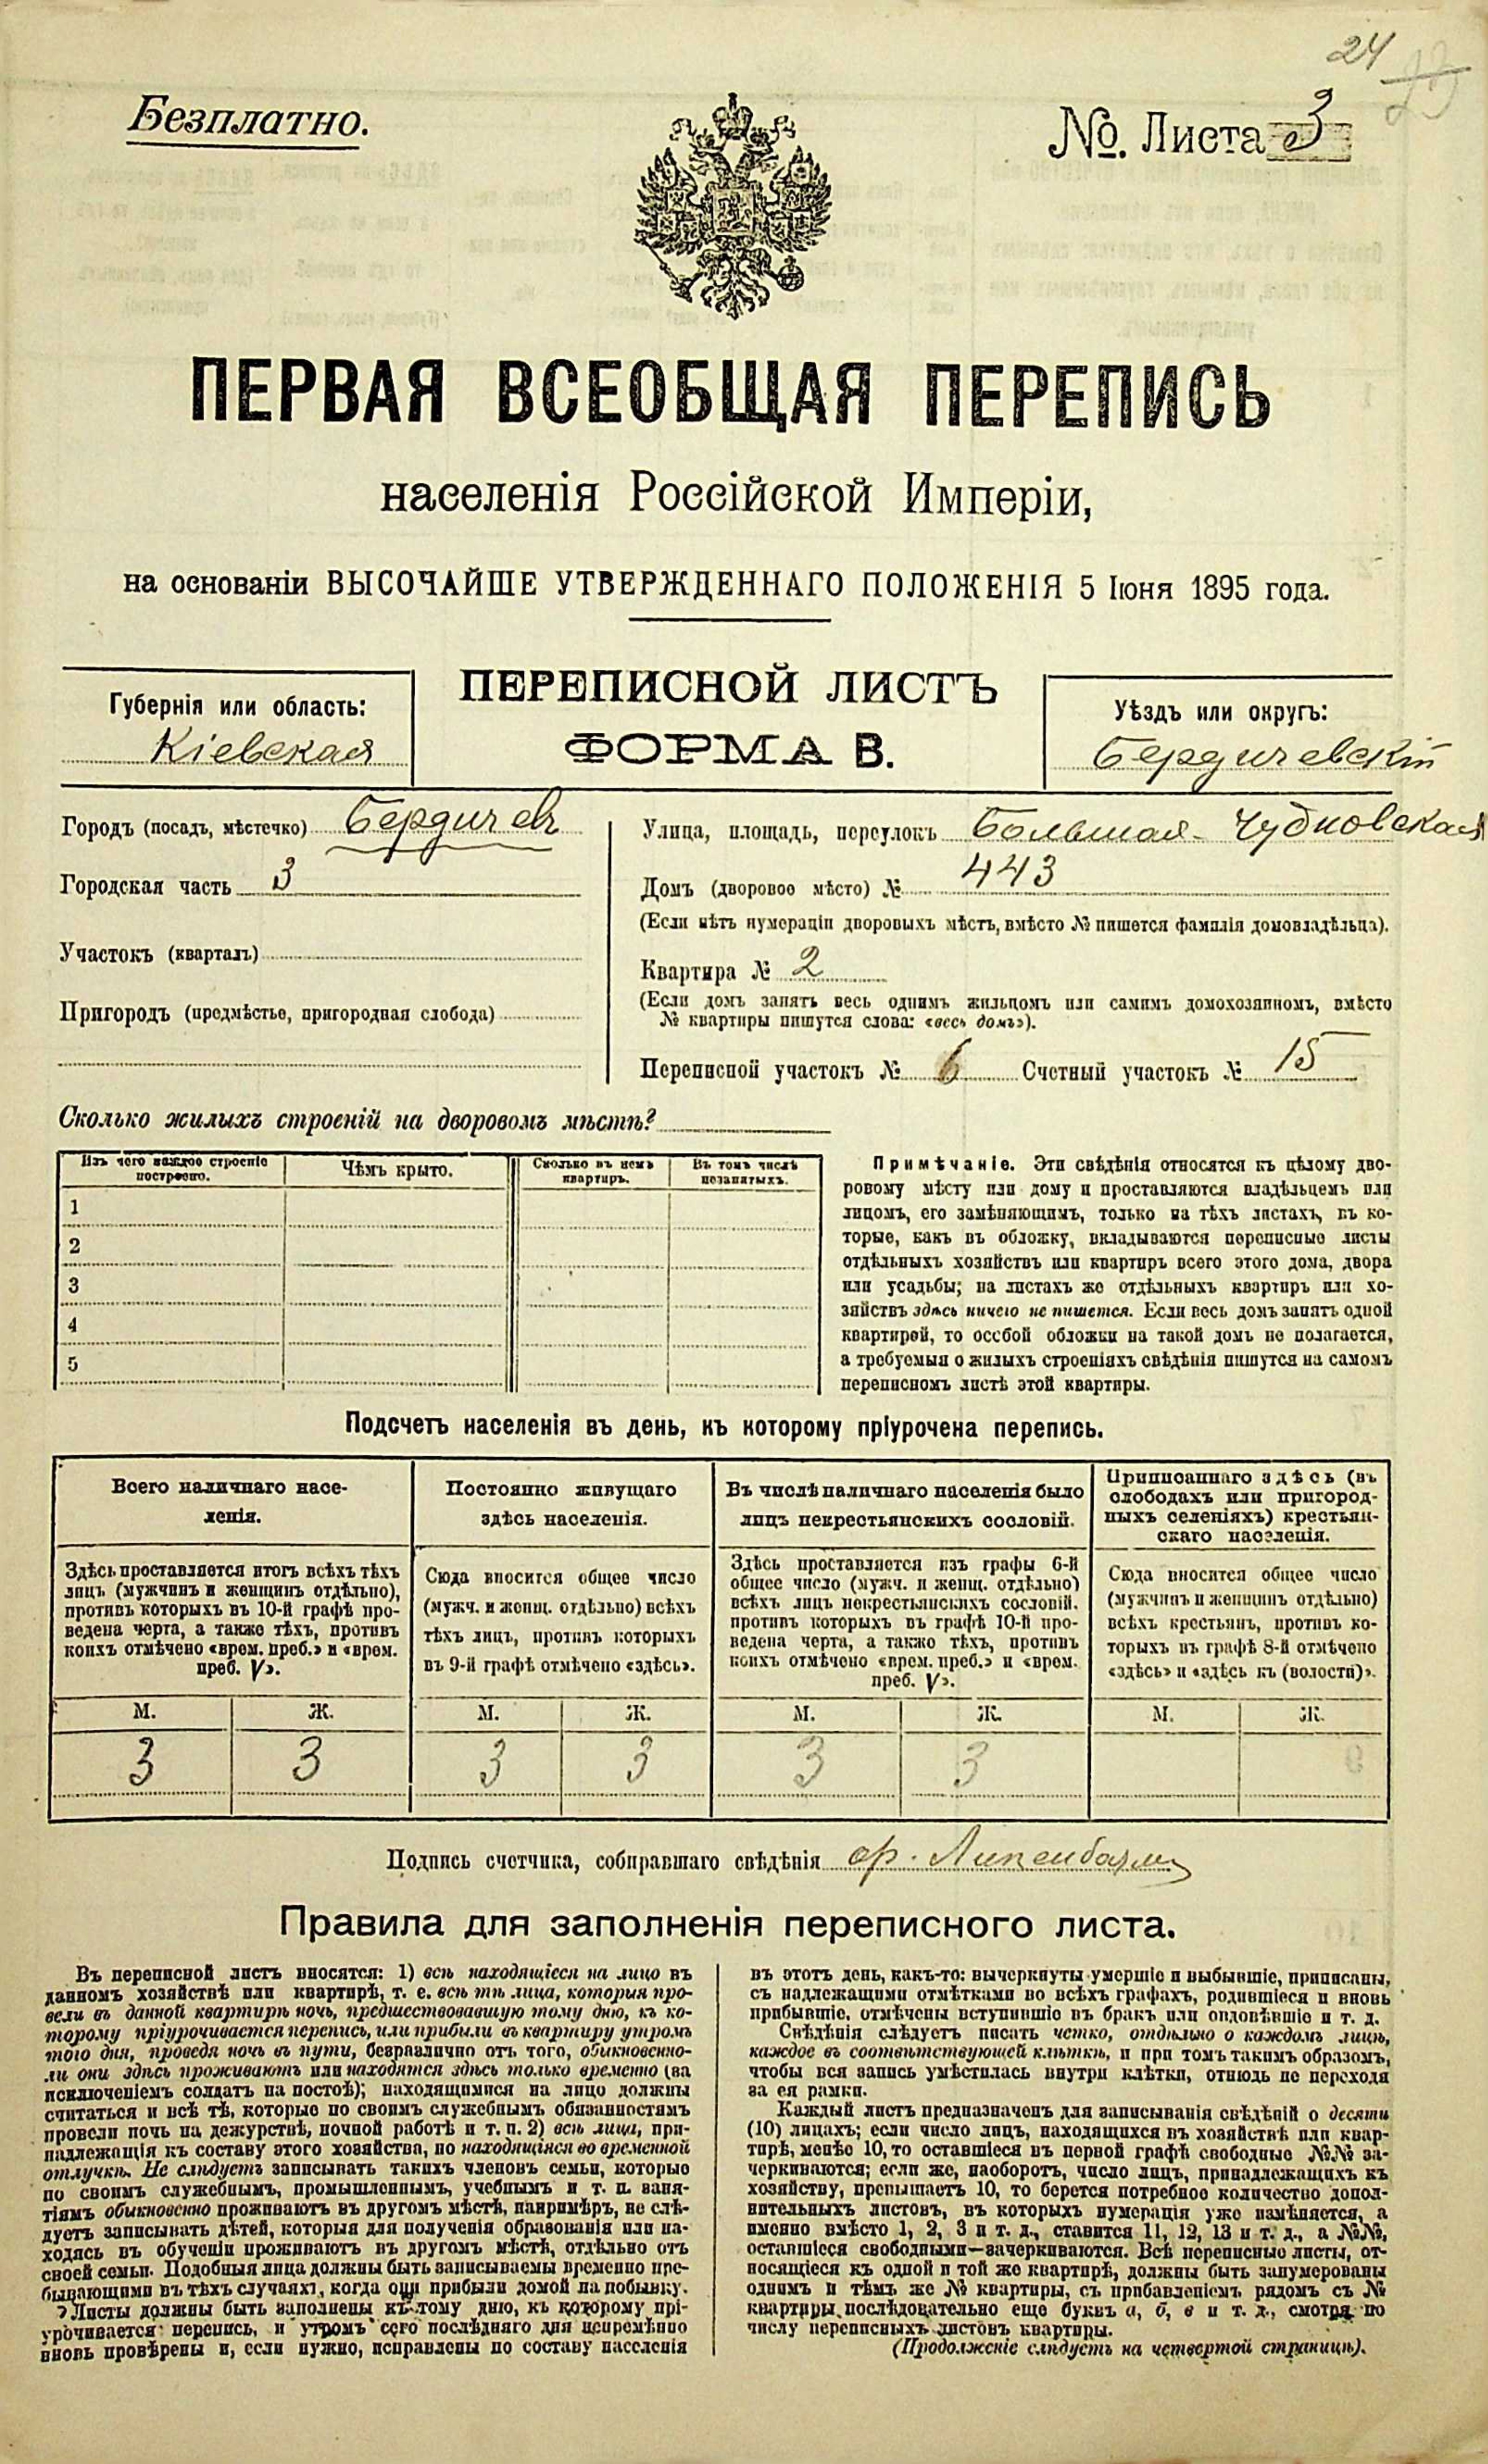 24
23
Безплатно.
№. Листа 3
ПЕРВАЯ ВСЕОБЩАЯ ПЕРЕПИСЬ
населенія Россійской Имперіи,
на основаніи ВЫСОЧАЙШЕ УТВЕРЖДЕННАГО ПОЛОЖЕНІЯ 5 Іюня 1895 года.
ПЕРЕПИСНОЙ ЛИСТЪ
ФОРМА В.
Губернія или область:
Кіевская
Уѣздъ или округъ:
Бердичевскій
Городъ (посадъ, мѣстечко) Бердичевъ
Городская часть 3
Участокъ (кварталъ)
Пригородъ (предмѣстье, пригородная слобода)
Улица, площадь, переулокъ Большая-Чудновская
Домъ (дворовое мѣсто) № 443
(Если нѣтъ нумераціи дворовыхъ мѣстъ, вмѣсто № пишется фамилія домовладѣльца).
Квартира № 2
(Если домъ занятъ весь однимъ жильцомъ или самимъ домохозяиномъ, вмѣсто
№ квартиры пишутся слова: «весь домъ»).
Переписной участокъ № 6 Счетный участокъ № 15
Сколько жилыхъ строеній на дворовомъ мѣстѣ?
Изъ чего каждое строеніе
построено.
Чѣмъ крыто.
Сколько въ немъ
квартиръ.
Въ томъ числѣ
незанятыхъ.
1
2
3
4
5
Примѣчаніе. Эти свѣдѣнія относятся къ цѣлому дво-
ровому мѣсту или дому и проставляются владѣльцемъ или
лицомъ, его замѣняющимъ, только на тѣхъ листахъ, въ ко-
торые, какъ въ обложку, вкладываются переписные листы
отдѣльныхъ хозяйствъ или квартиръ всего этого дома, двора
или усадьбы; на листахъ же отдѣльныхъ квартиръ или хо-
зяйствъ здѣсь ничего не пишется. Если весь домъ занятъ одной
квартирей, то особой обложки на такой домъ не полагается,
а требуемыя о жилыхъ строеніяхъ свѣдѣнія пишутся на самомъ
переписномъ листѣ этой квартиры.
Подсчетъ населенія въ день, къ которому пріурочена перепись.
Всего наличнаго насе-
ленія.
Здѣсь проставляется итогъ всѣхъ тѣхъ
лицъ (мужчинъ и женщинъ отдѣльно),
противъ которыхъ въ 10-й графѣ про-
ведена черта, а также тѣхъ, противъ
коихъ отмѣчено «врем. преб.» и «врем.
преб. V».
М. Ж.
3 3
Постоянно живущаго
здѣсь населенія.
Сюда вносится общее число
(мужч. и женщ. отдѣльно) всѣхъ
тѣхъ лицъ, противъ которыхъ
въ 9-й графѣ отмѣчено «здѣсь».
М. Ж.
3 3
Въ числѣ наличнаго населенія было
лицъ некрестьянскихъ сословій.
Здѣсь проставляется изъ графы 6-й
общее число (мужч. и женщ. отдѣльно)
всѣхъ лицъ некрестьянскихъ сословій,
противъ которыхъ въ графѣ 10-й про-
ведена черта, а также тѣхъ, противъ
коихъ отмѣчено «врем. преб.» и «врем.
преб. V».
М. Ж.
3 3
Приписаннаго здѣсь (въ
слободахъ или пригород-
ныхъ селеніяхъ) крестьян-
скаго населенія.
Сюда вносится общее число
(мужчинъ и женщинъ отдѣльно)
всѣхъ крестьянъ, противъ ко-
торыхъ въ графѣ 8-й отмѣчено
«здѣсь» и «здѣсь къ (волости)».
М. Ж.
Подпись счетчика, собиравшаго свѣдѣнія
Правила для заполненія переписного листа.
Въ переписной листъ вносятся: 1) всѣ находящіеся на лицо въ
данномъ хозяйствѣ или квартирѣ, т. е. всѣ тѣ лица, которыя про-
вели въ данной квартирѣ ночь, предшествовавшую тому дню, къ ко-
торому пріурочивается перепись, или прибыли въ квартиру утромъ
того дня, проведя ночь въ пути, безразлично отъ того, обыкновенно-
ли они здѣсь проживаютъ или находятся здѣсь только временно (за
исключеніемъ солдатъ на постоѣ); находящимися на лицо должны
считаться и всѣ тѣ, которые по своимъ служебнымъ обязанностямъ
провели ночь на дежурствѣ, ночной работѣ и т. п. 2) всѣ лица, при-
надлежащія къ составу этого хозяйства, но находящіяся во временной
отлучкѣ. Не слѣдуетъ записывать такихъ членовъ семьи, которые
по своимъ служебнымъ, промышленнымъ, учебнымъ и т. п. заня-
тіямъ обыкновенно проживаютъ въ другомъ мѣстѣ, напримѣръ, не слѣ-
дуетъ записывать дѣтей, которыя для полученія образованія или на-
ходясь въ обученіи проживаютъ въ другомъ мѣстѣ, отдѣльно отъ
своей семьи. Подобныя лица должны быть записываемы временно пре-
бывающими въ тѣхъ случаяхъ, когда они прибыли домой на побывку.
Листы должны быть заполнены къ тому дню, къ которому прі-
урочивается перепись, и утромъ сего послѣдняго дня непремѣнно
вновь провѣрены и, если нужно, исправлены по составу населенія
въ этотъ день, какъ-то: вычеркнуты умершіе и выбывшіе, приписаны,
съ надлежащими отмѣтками во всѣхъ графахъ, родившіеся и вновь
прибывшіе, отмѣчены вступившіе въ бракъ или овдовѣвшіе и т. д.
Свѣдѣнія слѣдуетъ писать четко, отдѣльно о каждомъ лицѣ,
каждое въ соотвѣтствующей клѣткѣ, и при томъ такимъ образомъ,
чтобы вся запись умѣстилась внутри клѣтки, отнюдь не переходя
за ея рамки.
Каждый листъ предназначенъ для записыванія свѣдѣній о десяти
(10) лицахъ; если число лицъ, находящихся въ хозяйствѣ или квар-
тирѣ, менѣе 10, то оставшіеся въ первой графѣ свободные №№ за-
черкиваются; если же, наоборотъ, число лицъ, принадлежащихъ къ
хозяйству, превышаетъ 10, то берется потребное количество допол-
нительныхъ листовъ, въ которыхъ нумерація уже измѣняется, а
именно вмѣсто 1, 2, 3 и т. д., ставится 11, 12, 13 и т. д., а №№,
оставшіеся свободными—зачеркиваются. Всѣ переписные листы, от-
носящіеся къ одной и той же квартирѣ, должны быть занумерованы
однимъ и тѣмъ же № квартиры, съ прибавленіемъ рядомъ съ №
квартиры послѣдовательно еще буквъ а, б, в и т. д., смотря по
числу переписныхъ листовъ квартиры.
(Продолженіе слѣдуетъ на четвертой страницѣ).